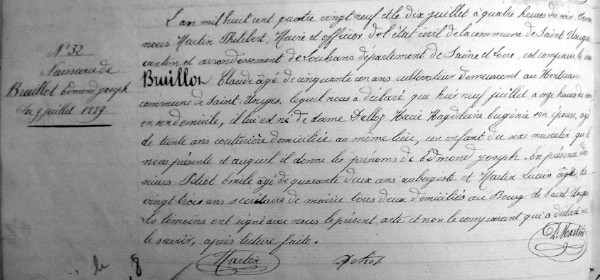 N° 32
Naissance de
Bruillot Edmond Joseph
Le 9 juillet 1889
L'an mil huit cent quatre vingt neuf et le dix juillet à quatre heures du soir Devant
nous Martin Philibert, Maire et officier de l'état civil de la commune de Saint Usuge
canton et arrondissement de Louhans département de Saône et Loire, est comparu le
Bruillot Claude âgé de cinquante un ans cultivateur demeurant au
commune de Saint-Usuge, lequel nous a déclaré que hier neuf juillet à onze heures du
en son domicile, il lui est né de dame Tellez Marie Magdeleine Eugénie son épouse, âgée
de trente ans couturière domiciliée au même lieu, un enfant du sexe masculin qu'il
nous présente et auquel il donne les prénoms de Edmond Joseph. En présence de
sieurs Petiot Emile âgé de quarante deux ans aubergiste et Martin Lucien âgé de
vingt trois ans secrétaire de mairie tous deux domiciliés au Bourg de Saint Usuge
Les témoins ont signé avec nous le présent acte et non le comparant qui a déclaré ne
le savoir, après lecture faite.
Martin
Petiot
P. Martin